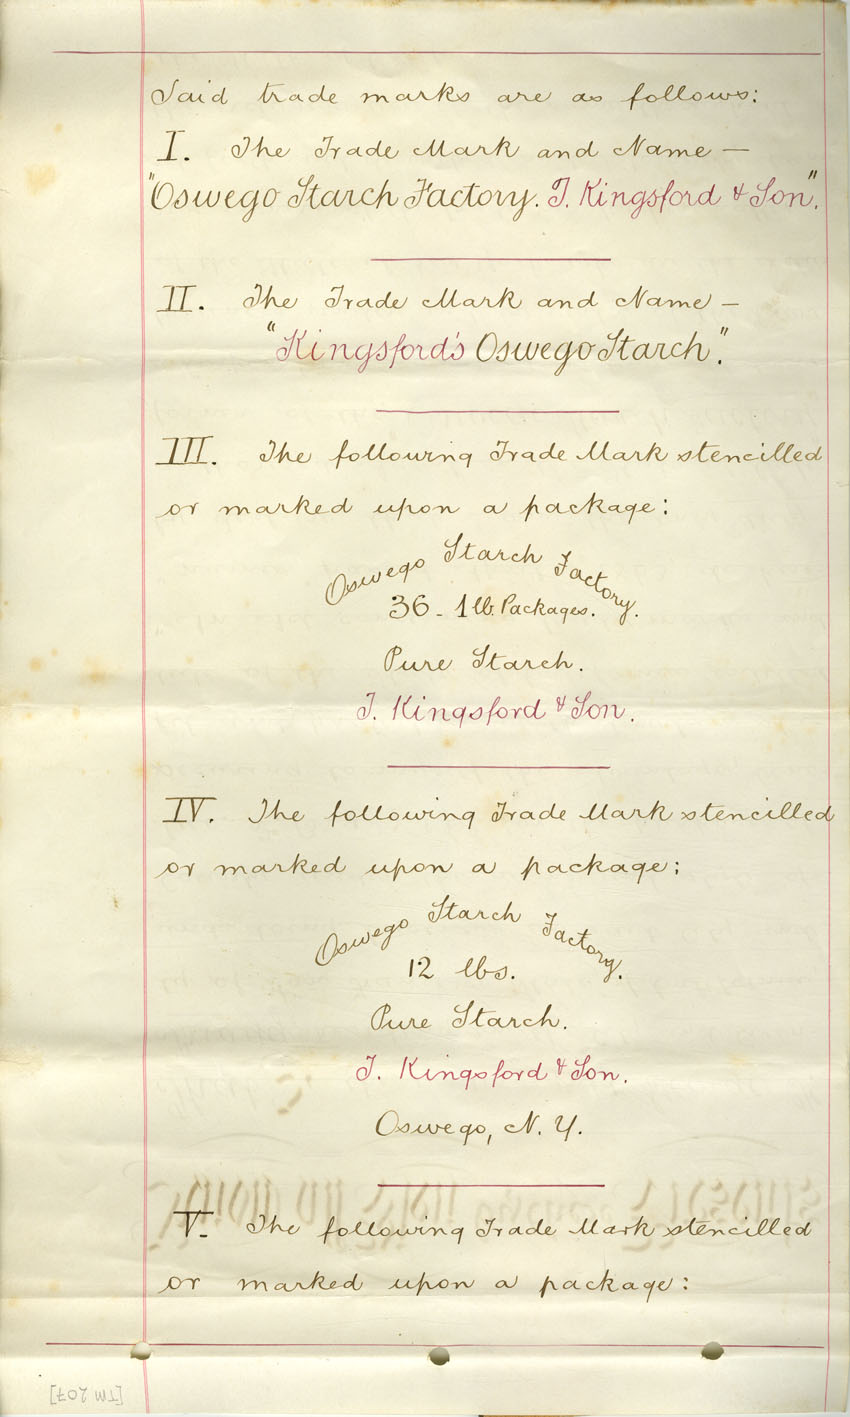 Said trade marks are as follows:
I. The Trade Mark and Name —
"Oswego Starch Factory. T. Kingsford & Son".
II. The Trade Mark and Name —
"Kingsford's Oswego Starch".
III. The following Trade Mark stencilled
or marked upon a package:
Oswego Starch Factory.
36 - 1 lb. Packages.
Pure Starch.
T. Kingsford & Son.
IV. The following Trade Mark stencilled
or marked upon a package:
Oswego Starch Factory.
12 lbs.
Pure Starch.
T. Kingsford & Son.
Oswego, N. Y.
V. The following Trade Mark stencilled
or marked upon a package:
[TM 207]